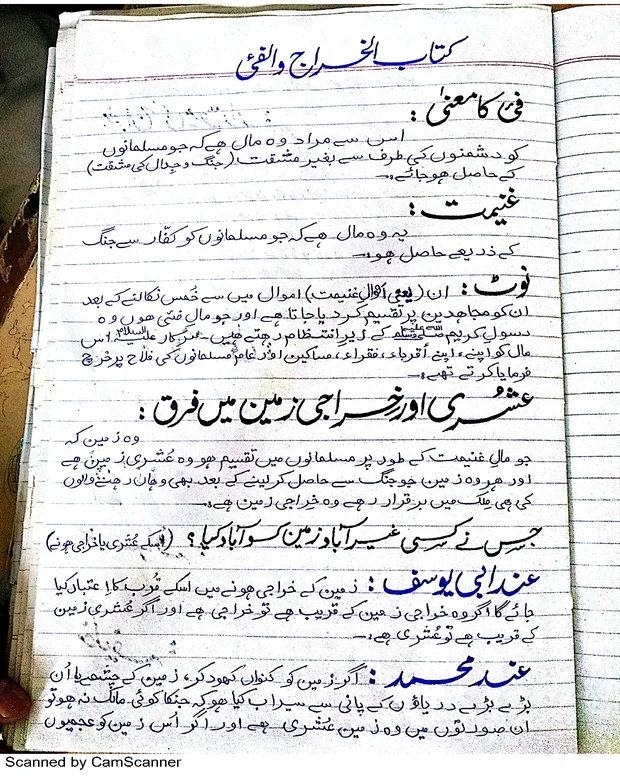 کتاب الخراج والفئی
فئ کا معنیٰ :
اس سے مراد وہ مال ہے کہ جو مسلمانوں
کو دشمنوں کی طرف سے بغیر مشقت (جنگ و جدال کی مشقت)
کے حاصل ہو جائے ۔
غنیمت :
یہ وہ مال ہے کہ جو مسلمانوں کو کفّار سے جنگ
کے ذریعے حاصل ہو ۔
نوٹ : ان (یعنی اموالِ غنیمت) اموال میں سے خُمس نکالنے کے بعد
ان کو مجاھدین پر تقسیم کر دیا جاتا ہے اور جو مال فئی ھوں وہ
رسولِ کریم صلی اللہ علیہ وسلم کے زیرِ انتظام رہتے ھیں۔ سرکار علیہ السلام اس
مال کو اپنے ، اپنے أقرباء ، فقراء ، مساکین اور عام مسلمانوں کی فلاح پر خرچ
فرمایا کرتے تھے ۔
عشُری اور خِراجی زمین میں فرق :
وہ زمین کہ
جو مالِ غنیمت کے طور پر مسلمانوں میں تقسیم ہو وہ عُشری زمین ہے
اور ھر وہ زمین جو جنگ سے حاصل کر لینے کے بعد بھی وھاں رھنے والوں
کی ہی ملک میں برقرار رہے وہ خِراجی زمین ہے ۔
جس نے کسی غیر آباد زمین کو آباد کیا ؟ (اسکے عُشری یا خراجی ہونے)
عند ابی یوسف : زمین کے خراجی ہونے میں اسکے قُرب کا اعتبار کیا
جائے گا اگر وہ خراجی زمین کے قریب ہے تو خراجی ہے اور اگر عُشری زمین
کے قریب ہے تو عُشری ہے ۔
عند محمد : اگر زمین کو کنواں کھود کر ، زمین کے چشمے یا اُن
بڑے بڑے دریاؤں کے پانی سے سیراب کیا ہو کہ جنکا کوئی مالک نہ ہو تو
ان صورتوں میں وہ زمین عُشری ہے اور اگر اُس زمین کو عجمیوں
Scanned by CamScanner